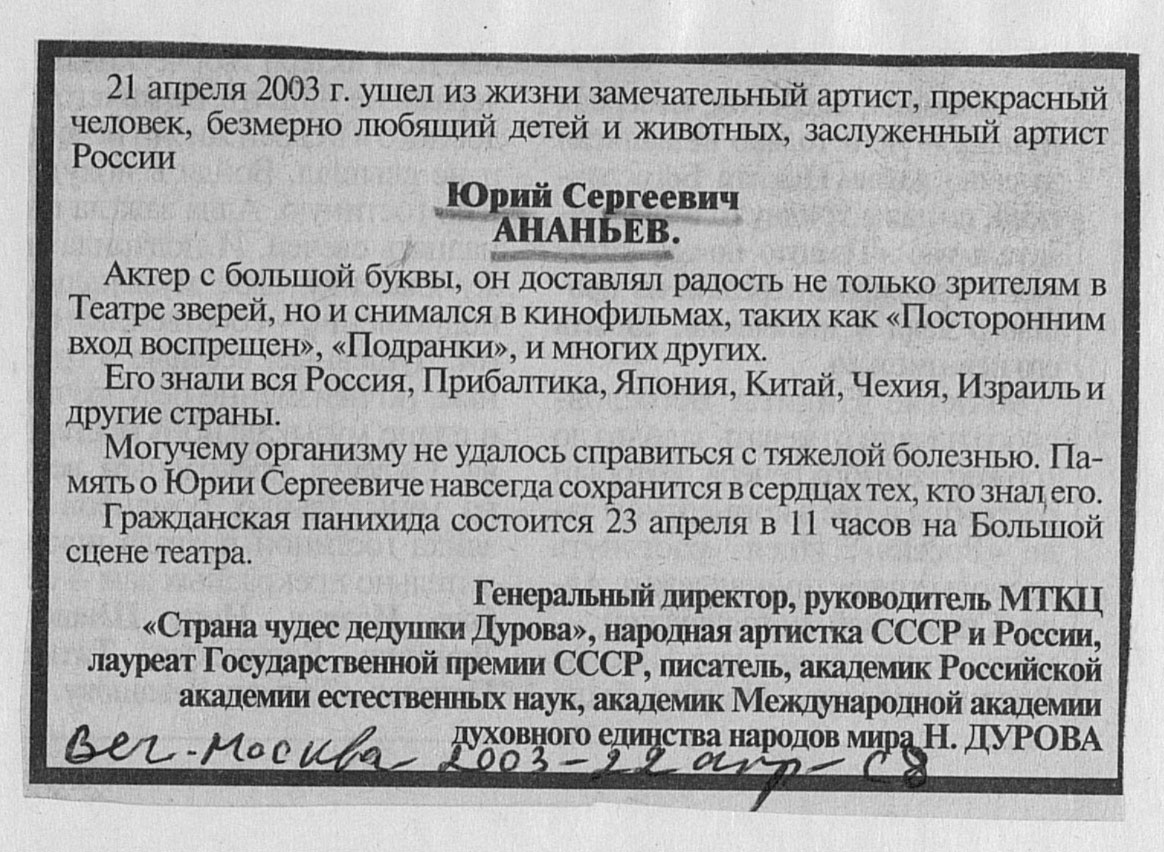 21 апреля 2003 г. ушел из жизни замечательный артист, прекрасный
человек, безмерно любящий детей и животных, заслуженный артист
России
Юрий Сергеевич
АНАНЬЕВ.
Актер с большой буквы, он доставлял радость не только зрителям в
Театре зверей, но и снимался в кинофильмах, таких как «Посторонним
вход воспрещен», «Подранки», и многих других.
Его знали вся Россия, Прибалтика, Япония, Китай, Чехия, Израиль и
другие страны.
Могучему организму не удалось справиться с тяжелой болезнью. Па-
мять о Юрии Сергеевиче навсегда сохранится в сердцах тех, кто знал его.
Гражданская панихида состоится 23 апреля в 11 часов на Большой
сцене театра.
Генеральный директор, руководитель МТКЦ
«Страна чудес дедушки Дурова», народная артистка СССР и России,
лауреат Государственной премии СССР, писатель, академик Российской
академии естественных наук, академик Международной академии
духовного единства народов мира Н. ДУРОВА
Веч-Москва - 2003-22 апр- С8